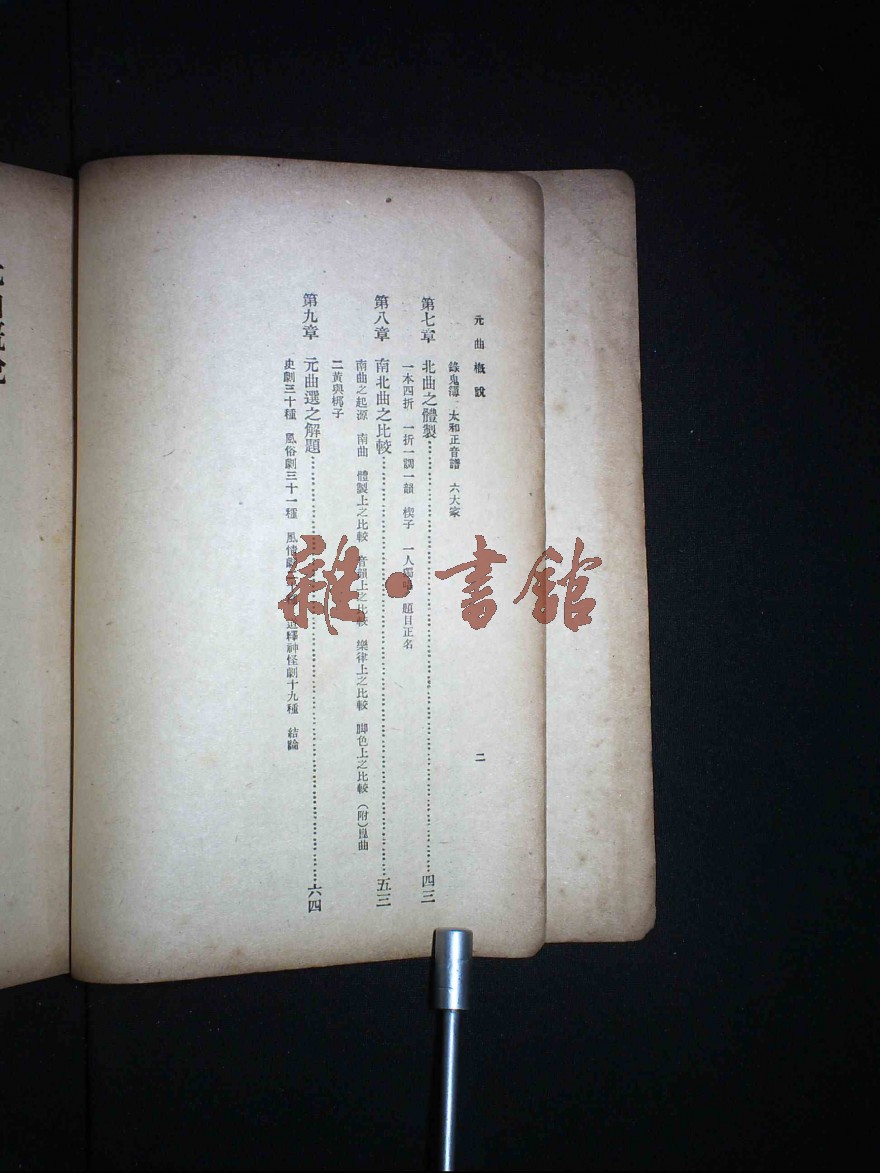 元曲概說
二
錄鬼簿 太和正音譜 六大家
第七章 北曲之體製 四三
一本四折 一折一調一韻 楔子 一人獨唱 題目正名
第八章 南北曲之比較 五三
南曲之起源 南曲 體製上之比較 音韻上之比較 樂律上之比較 脚色上之比較 (附)崑曲
二黃與梆子
第九章 元曲選之解題 六四
史劇三十種 風俗劇三十一種 風情劇 道釋神怪劇十九種 結論
雜·書館